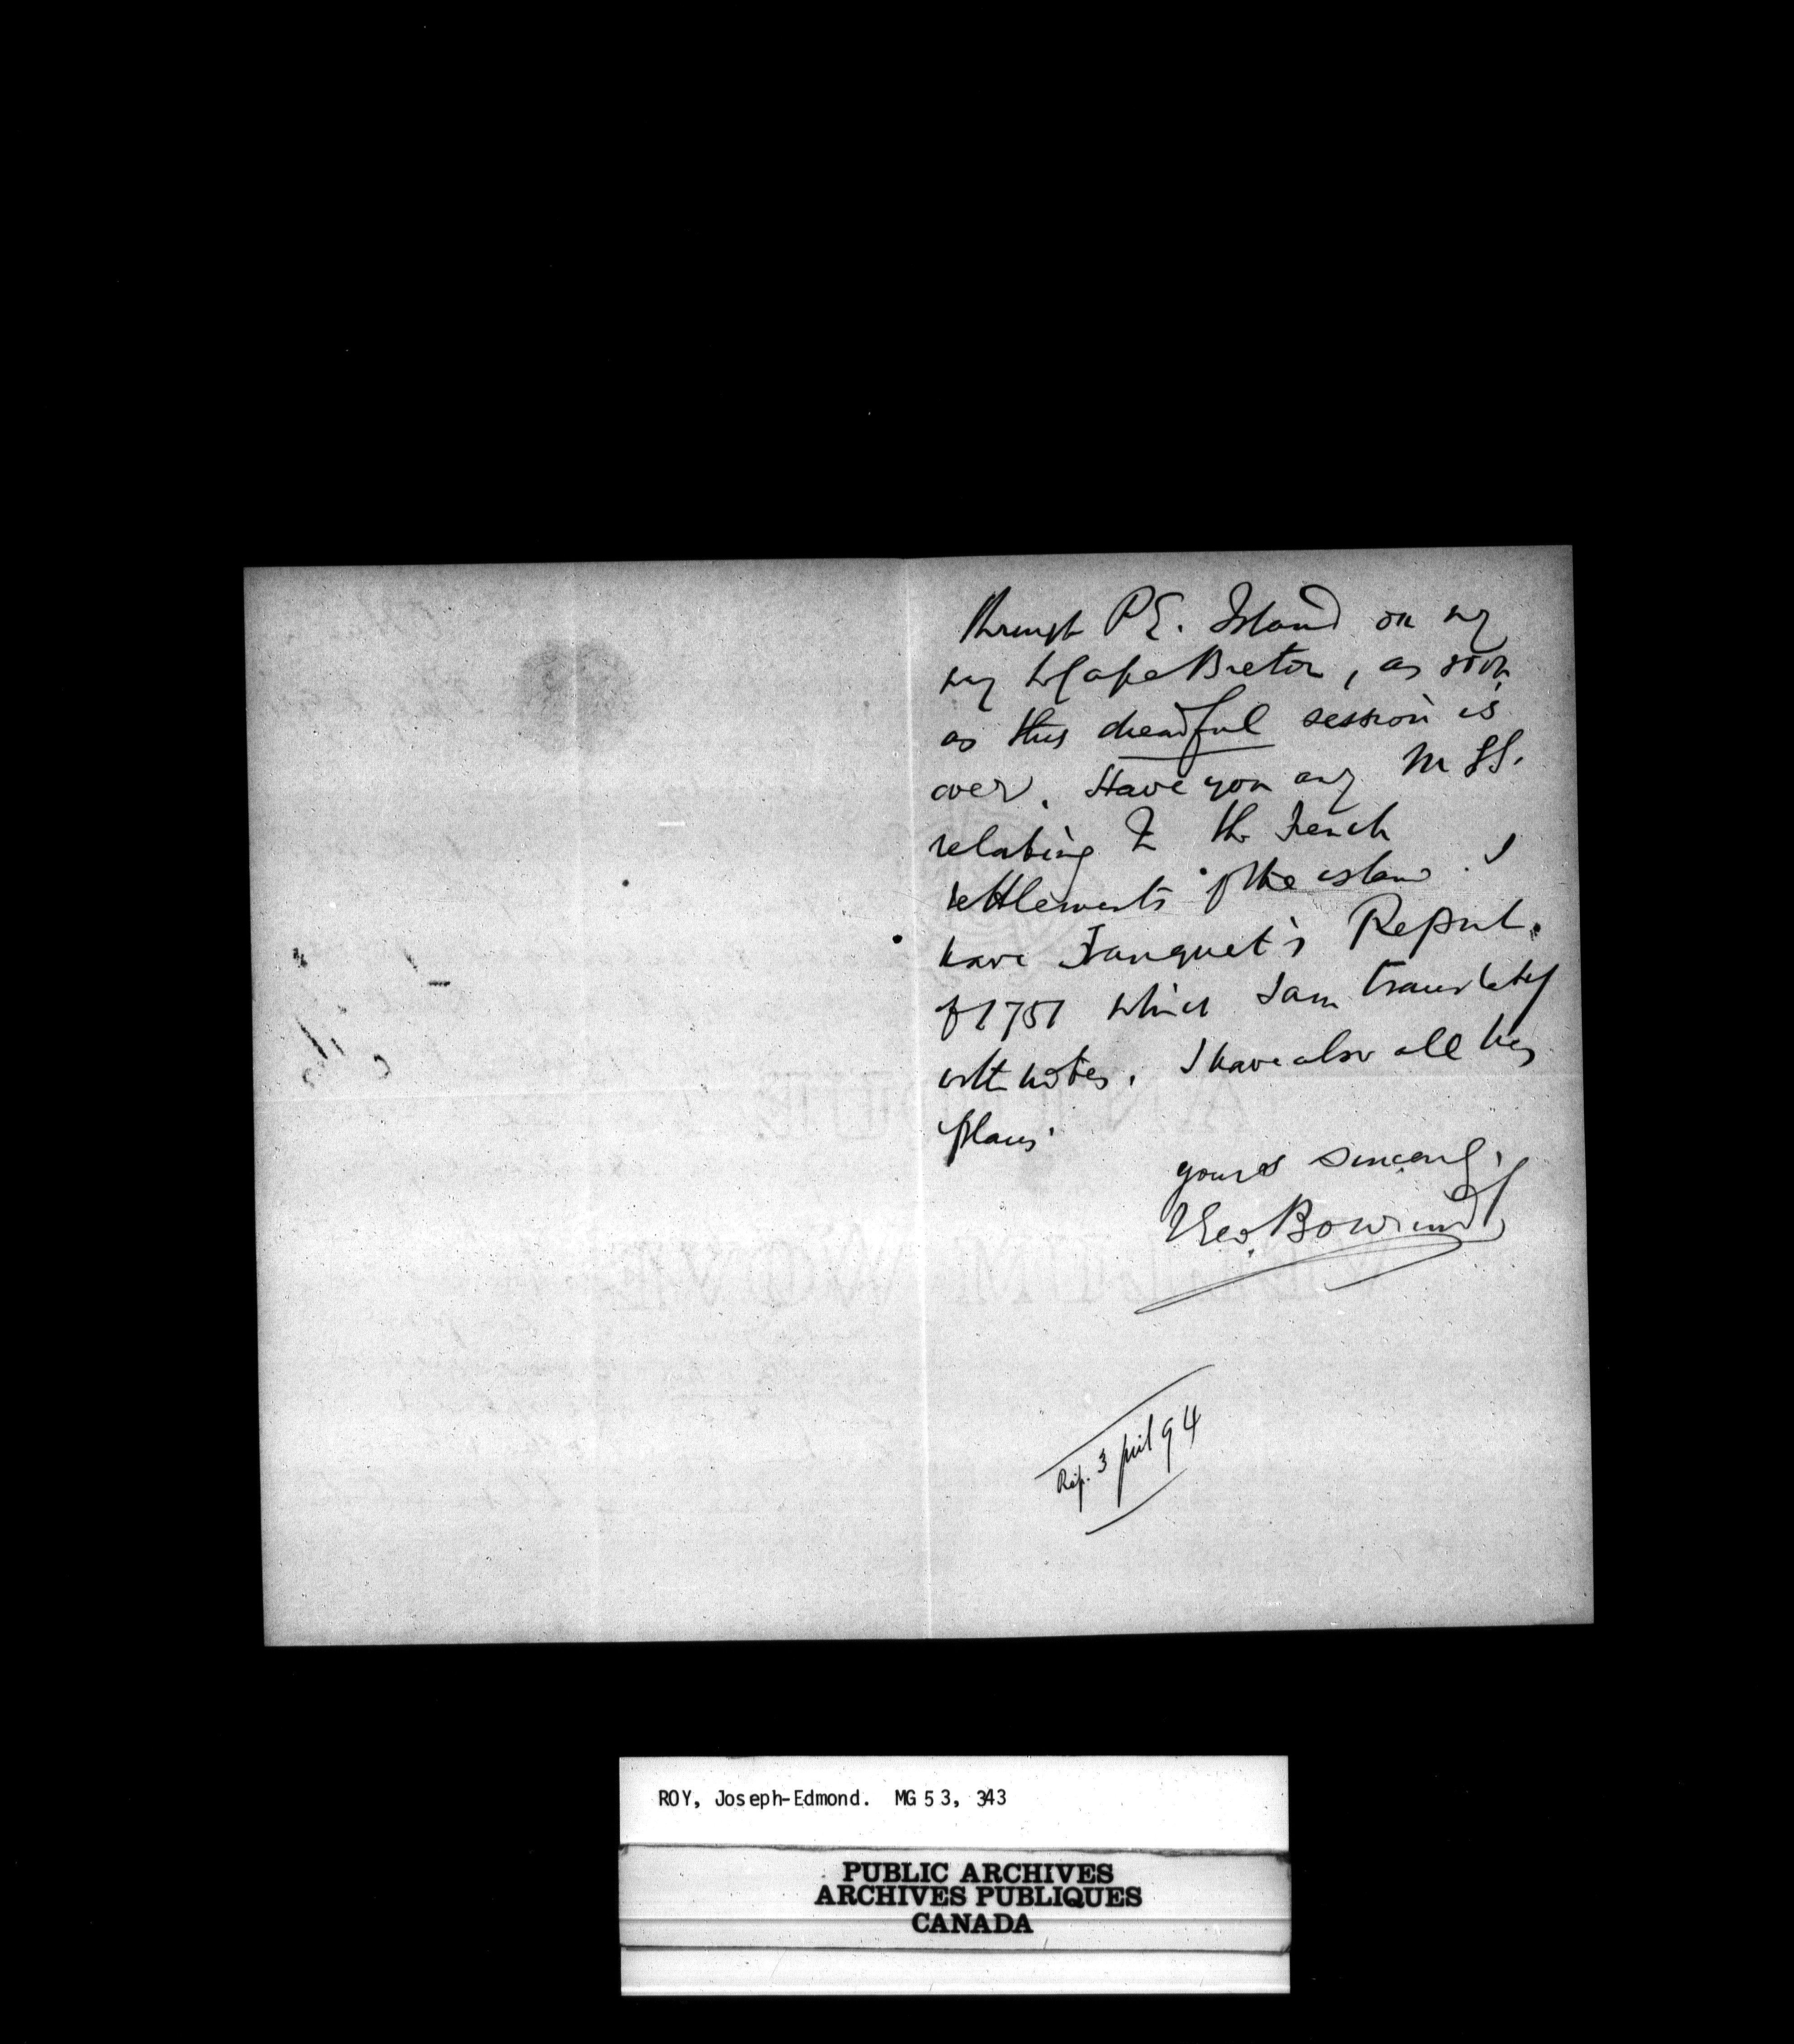 through P.E. Island on my
way to Cape Breton, as soon
as this dreadful session is
over. Have you any MSS.
relating to the French
settlements of the island. I
have Franquet's Report
of 1751 which I am translating
with notes. I have also all his
plans.
yours sincerely,
Geo. Bourinot
Rép. 3 juil 94
ANTIQUE
VELLUM WOVE
ROY, Joseph-Edmond. MG 53, 343
PUBLIC ARCHIVES
ARCHIVES PUBLIQUES
CANADA